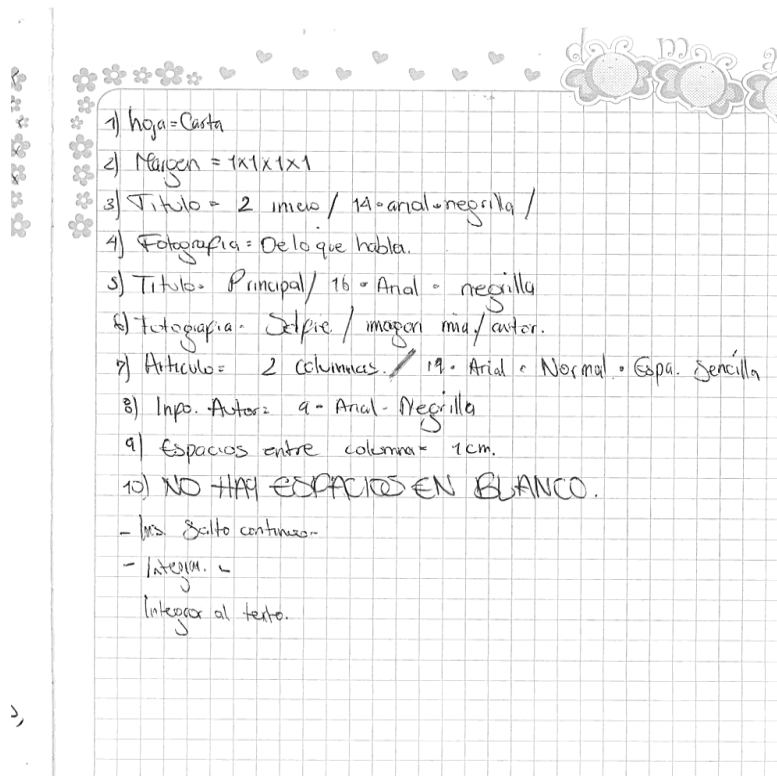 d m a
1) hoja = Carta
2) Margen = 1x1x1x1
3) Titulo = 2 inicio / 14 - arial - negrilla /
4) Fotografia = De lo que habla.
5) Titulo = Principal / 16 - Arial - negrilla
6) Fotografia - Selfie / imagen mia / autor.
7) Articulo = 2 columnas. / Arial - Normal - Espa. Sencilla
8) Info. Autor = 9 - Arial - Negrilla
9) Espacios entre columna = 1 cm.
10) NO HAY ESPACIOS EN BLANCO.
- Ins. Salto continuo -
- Integrar. -
Integrar al texto.